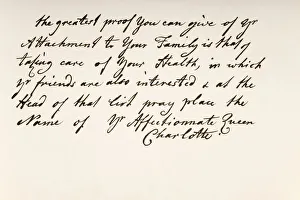 the greatest proof You can give of yr
Attachment to Your Family is that of
taking care of Your Health, in which
yr friends are also interested & at the
Head of that list pray place the
Name of Yr Affectionate Queen
Charlotte.